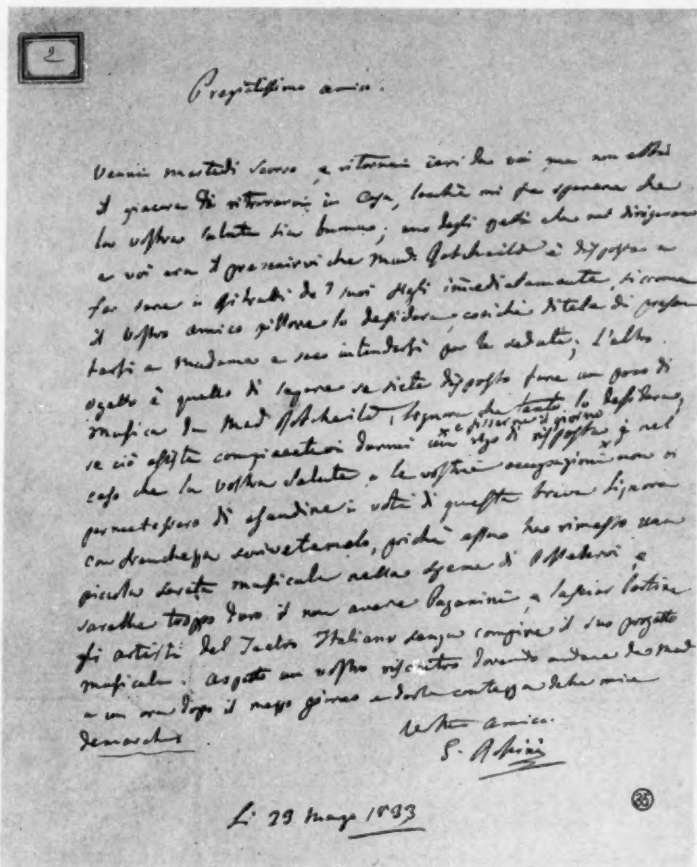 2
Pregiatissimo amico.
Venni martedì scorso, e ritornai ieri da voi, ma non ebbi
il piacere di ritrovarvi in casa, locchè mi fa sperare che
la vostra salute sia buona; uno degli ogetti che mi dirigevano
a voi era il prevenirvi che Mad. Rotchaild è disposta a
far fare i ritratti de' suoi figli immediatamente, siccome
il vostro amico pittore lo desidera, cosichè ditele di presen
tarsi a Madama e seco intendersi per le sedute; L'altro
ogetto è quello di sapere se siete disposto fare un poco di
musica da Mad Rotchaild, Signora che tanto lo desidera,
se ciò esiste compiacetevi darmi un rigo di risposta x e nel
x e fissarne il giorno
caso che la vostra salute, o le vostre occupazioni non vi
permettessero di esaudire i voti di questa brava Signora
con franchezza scrivetemelo, poichè essa ha rimesso una
piccola serata musicale nella speme di possedervi, e
sarebbe troppo duro il non avere Paganini, e lasciar partire
gli artisti del Teatro Italiano senza compire il suo progetto
musicale. Aspetto un vostro riscontro dovendo andare da Mad
a un ora dopo il mezzo giorno e darle contezza della mia
demarche
Vostro amico.
G. Rossini
Li 29 Marzo 1833
25